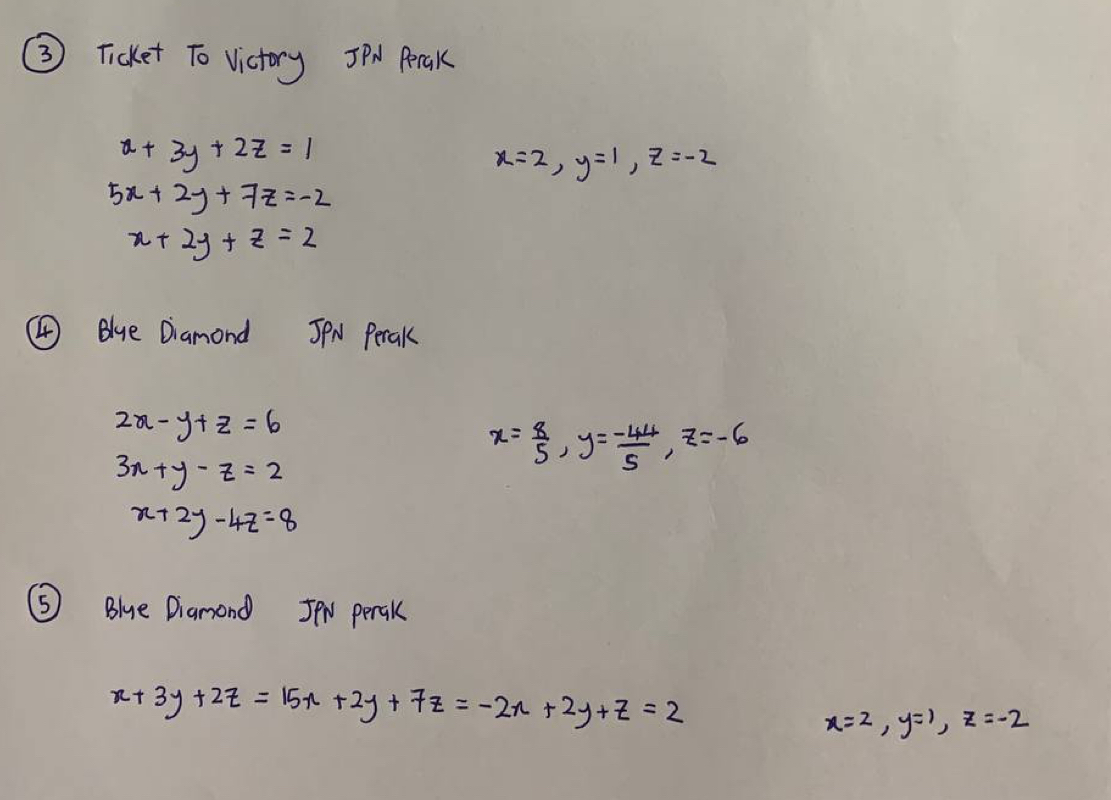 ③ Ticket To Victory JPN Perak
x + 3y + 2z = 1
x=2, y=1, z=-2
5x + 2y + 7z = -2
x + 2y + z = 2
④ Blue Diamond JPN Perak
2x - y + z = 6
x = 8/5, y = -44/5, z = -6
3x + y - z = 2
x + 2y - 4z = 8
⑤ Blue Diamond JPN Perak
x + 3y + 2z = 15x + 2y + 7z = -2x + 2y + z = 2
x=2, y=1, z=-2